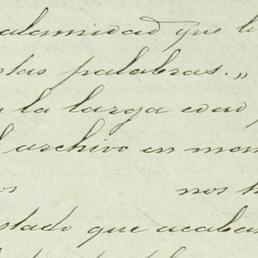 alamidad que l
stas palabras."
la larga edad
archivo en mon
os nos h
stado que acaba